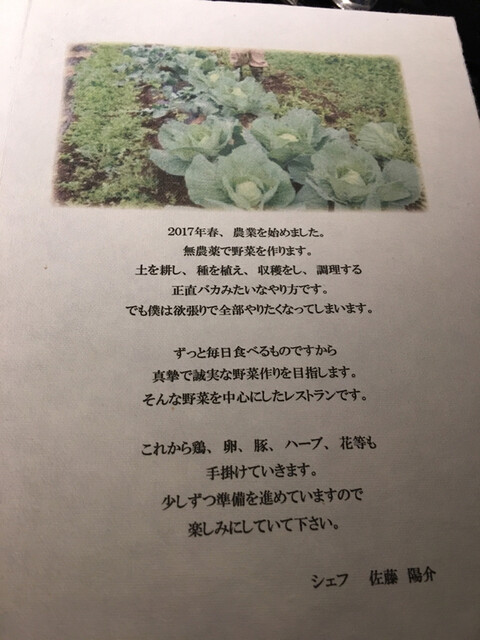 2017年春、農業を始めました。
無農薬で野菜を作ります。
土を耕し、種を植え、収穫をし、調理する
正直バカみたいなやり方です。
でも僕は欲張りで全部やりたくなってしまいます。
ずっと毎日食べるものですから
真摯で誠実な野菜作りを目指します。
そんな野菜を中心にしたレストランです。
これから鶏、卵、豚、ハーブ、花等も
手掛けていきます。
少しずつ準備を進めていますので
楽しみにしていて下さい。
シェフ　佐藤 陽介